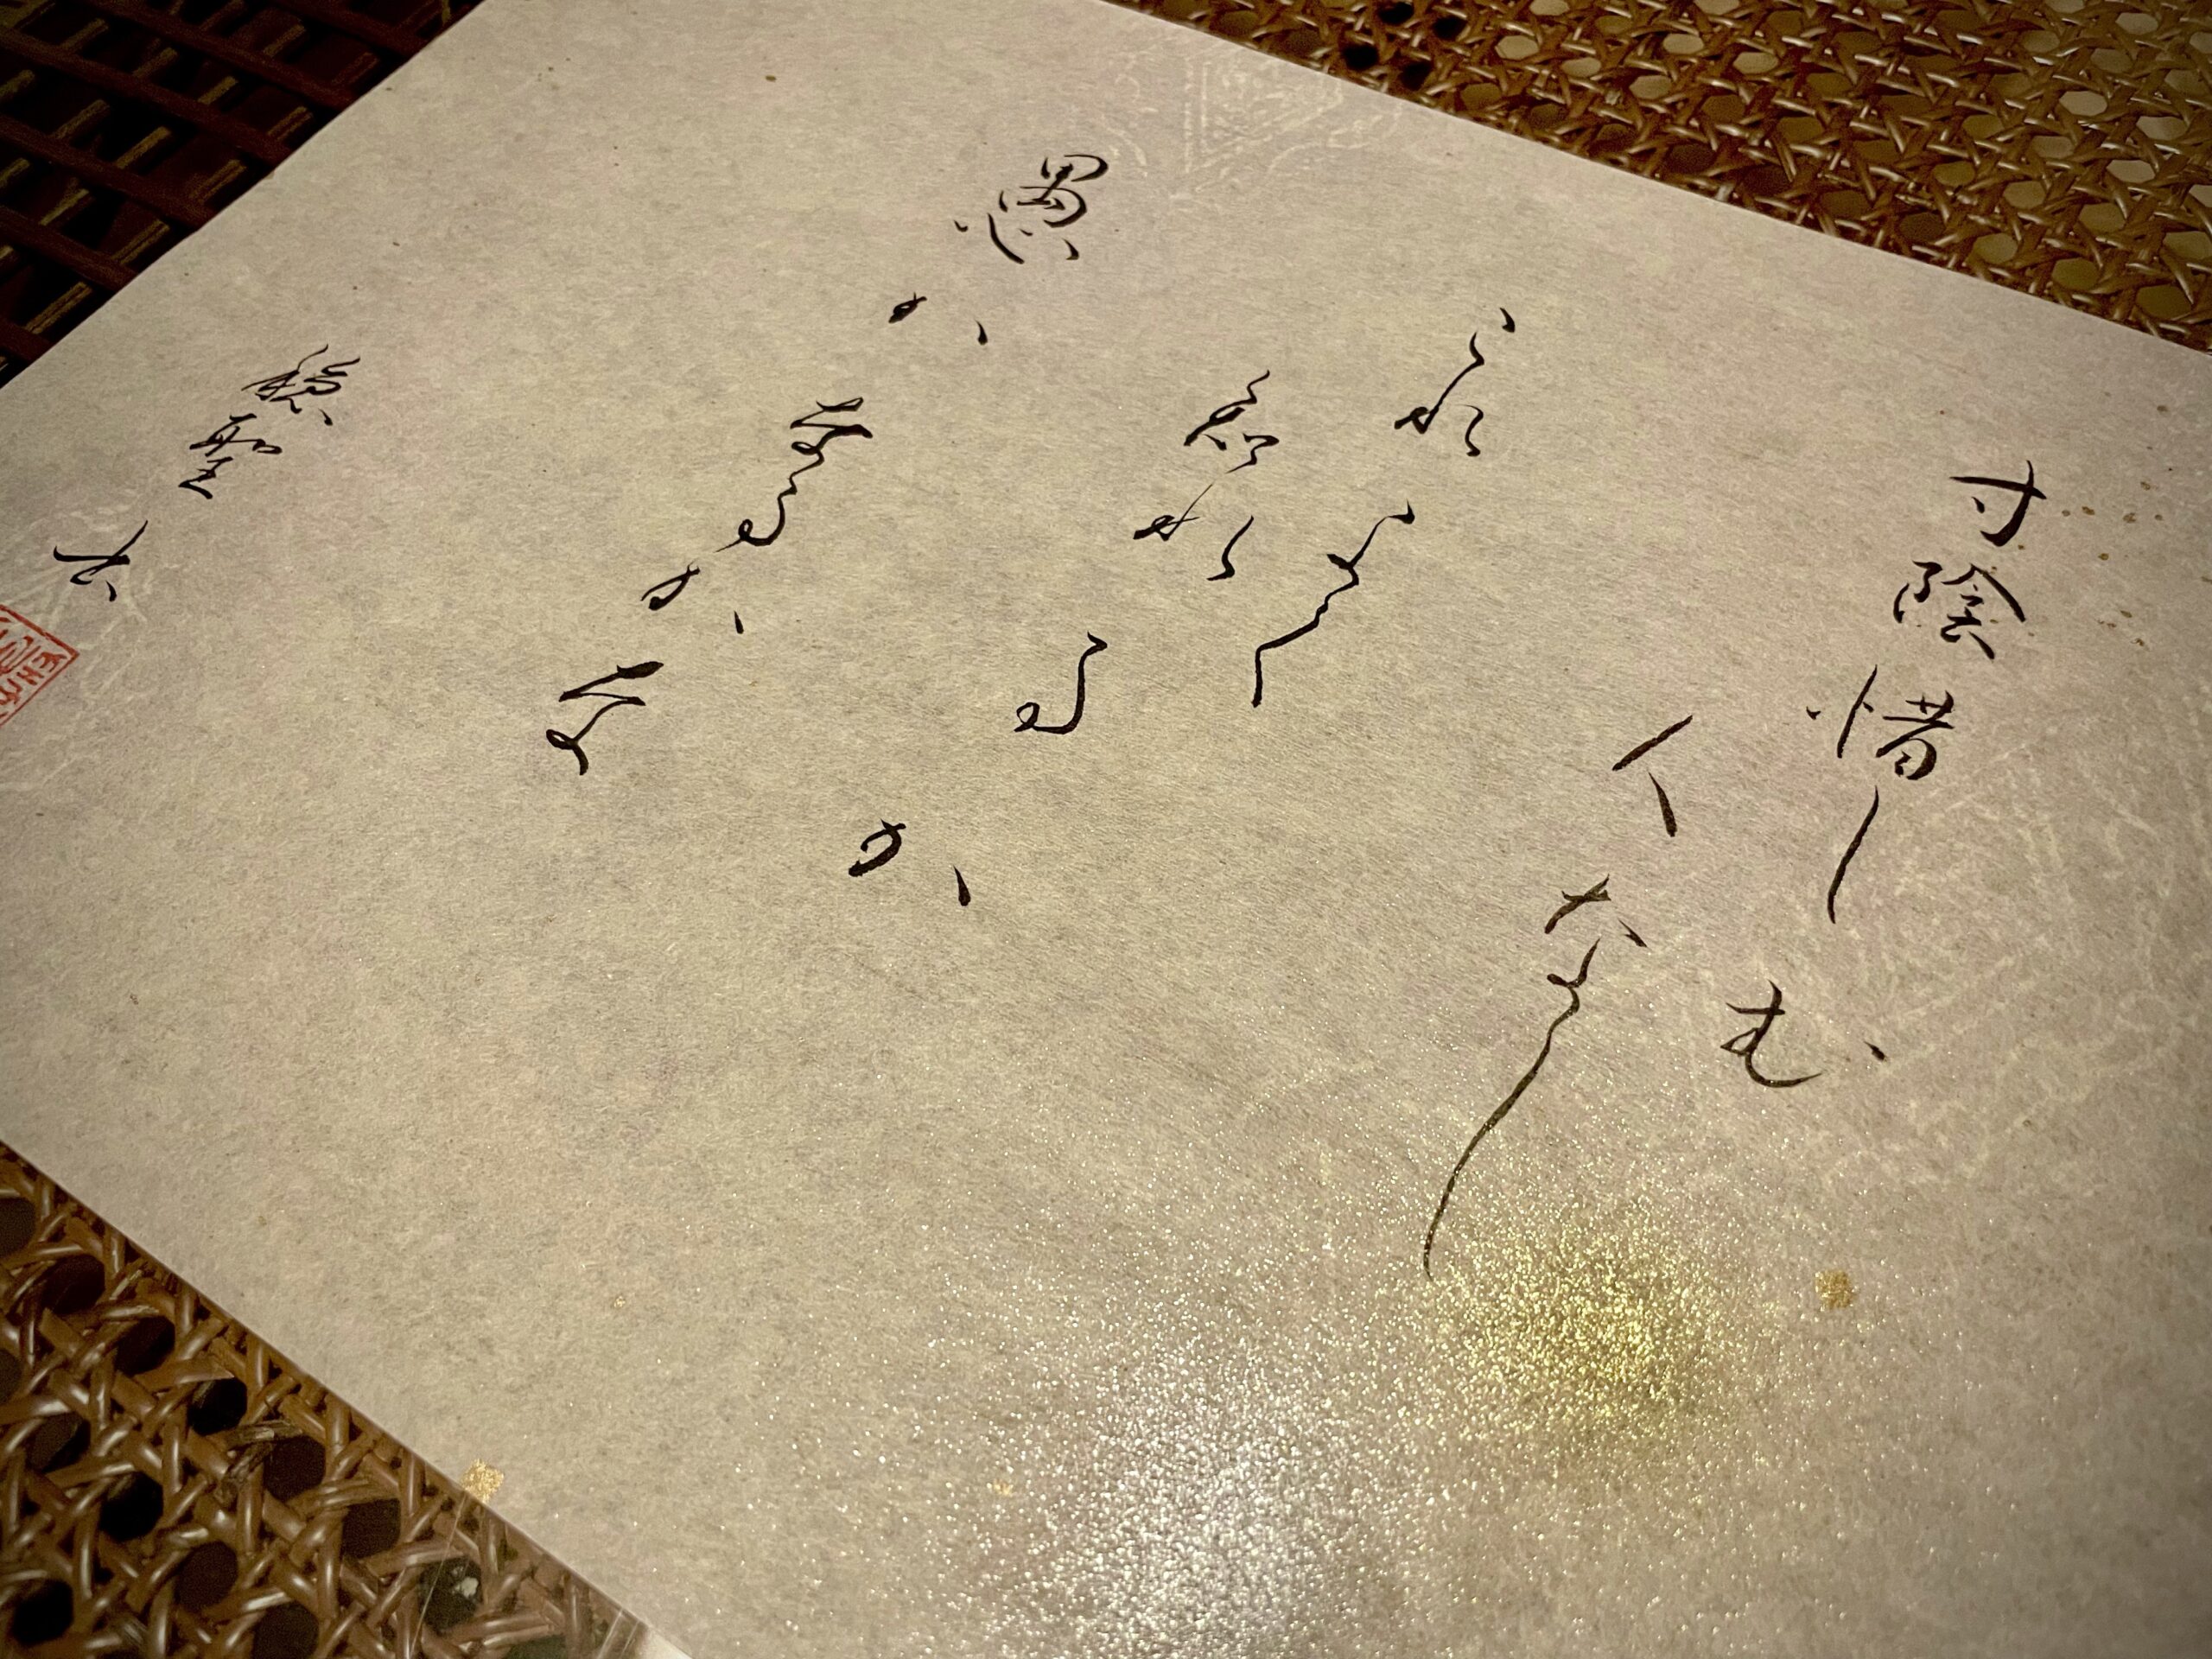 寸陰惜しむ
人なし
これよく
知れるか
愚かなるか